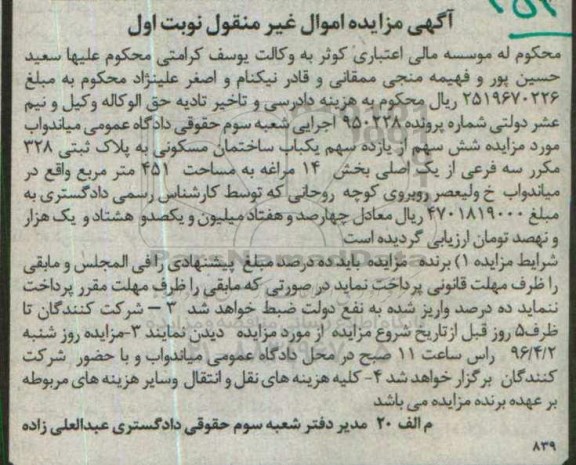 ۲۵۴
آگهی مزایده اموال غیر منقول نوبت اول
محکوم له موسسه مالی اعتباری کوثر به وکالت یوسف کرامتی محکوم علیها سعید
حسین پور و فهیمه منجی ممقانی و قادر نیکنام و اصغر علینژاد محکوم به مبلغ
۲۵۱۹۶۷۰۲۲۶ ریال محکوم به هزینه دادرسی و تاخیر تادیه حق الوکاله وکیل و نیم
عشر دولتی شماره پرونده ۹۵۰۲۲۸ اجرایی شعبه سوم حقوقی دادگاه عمومی میاندواب
مورد مزایده شش سهم از یازده سهم یکباب ساختمان مسکونی به پلاک ثبتی ۳۲۸
مکرر سه فرعی از یک اصلی بخش ۱۴ مراغه به مساحت ۴۵۱ متر مربع واقع در
میاندواب خ ولیعصر روبروی کوچه روحانی که توسط کارشناس رسمی دادگستری به
مبلغ ۴۷۰۱۸۱۹۰۰۰ ریال معادل چهارصد و هفتاد میلیون و یکصدو هشتاد و یک هزار
و نهصد تومان ارزیابی گردیده است
شرایط مزایده ۱) برنده مزایده باید ده درصد مبلغ پیشنهادی را فی المجلس و مابقی
را ظرف مهلت قانونی پرداخت نماید در صورتی که مابقی را ظرف مهلت مقرر پرداخت
ننماید ده درصد واریز شده به نفع دولت ضبط خواهد شد ۳ – شرکت کنندگان تا
ظرف۵ روز قبل از تاریخ شروع مزایده از مورد مزایده دیدن نمایند ۳-مزایده روز شنبه
۹۶/۴/۲ راس ساعت ۱۱ صبح در محل دادگاه عمومی میاندواب و با حضور شرکت
کنندگان برگزار خواهد شد ۴- کلیه هزینه های نقل و انتقال وسایر هزینه های مربوطه
بر عهده برنده مزایده می باشد
م الف ۲۰ مدیر دفتر شعبه سوم حقوقی دادگستری عبدالعلی زاده
۸۳۹